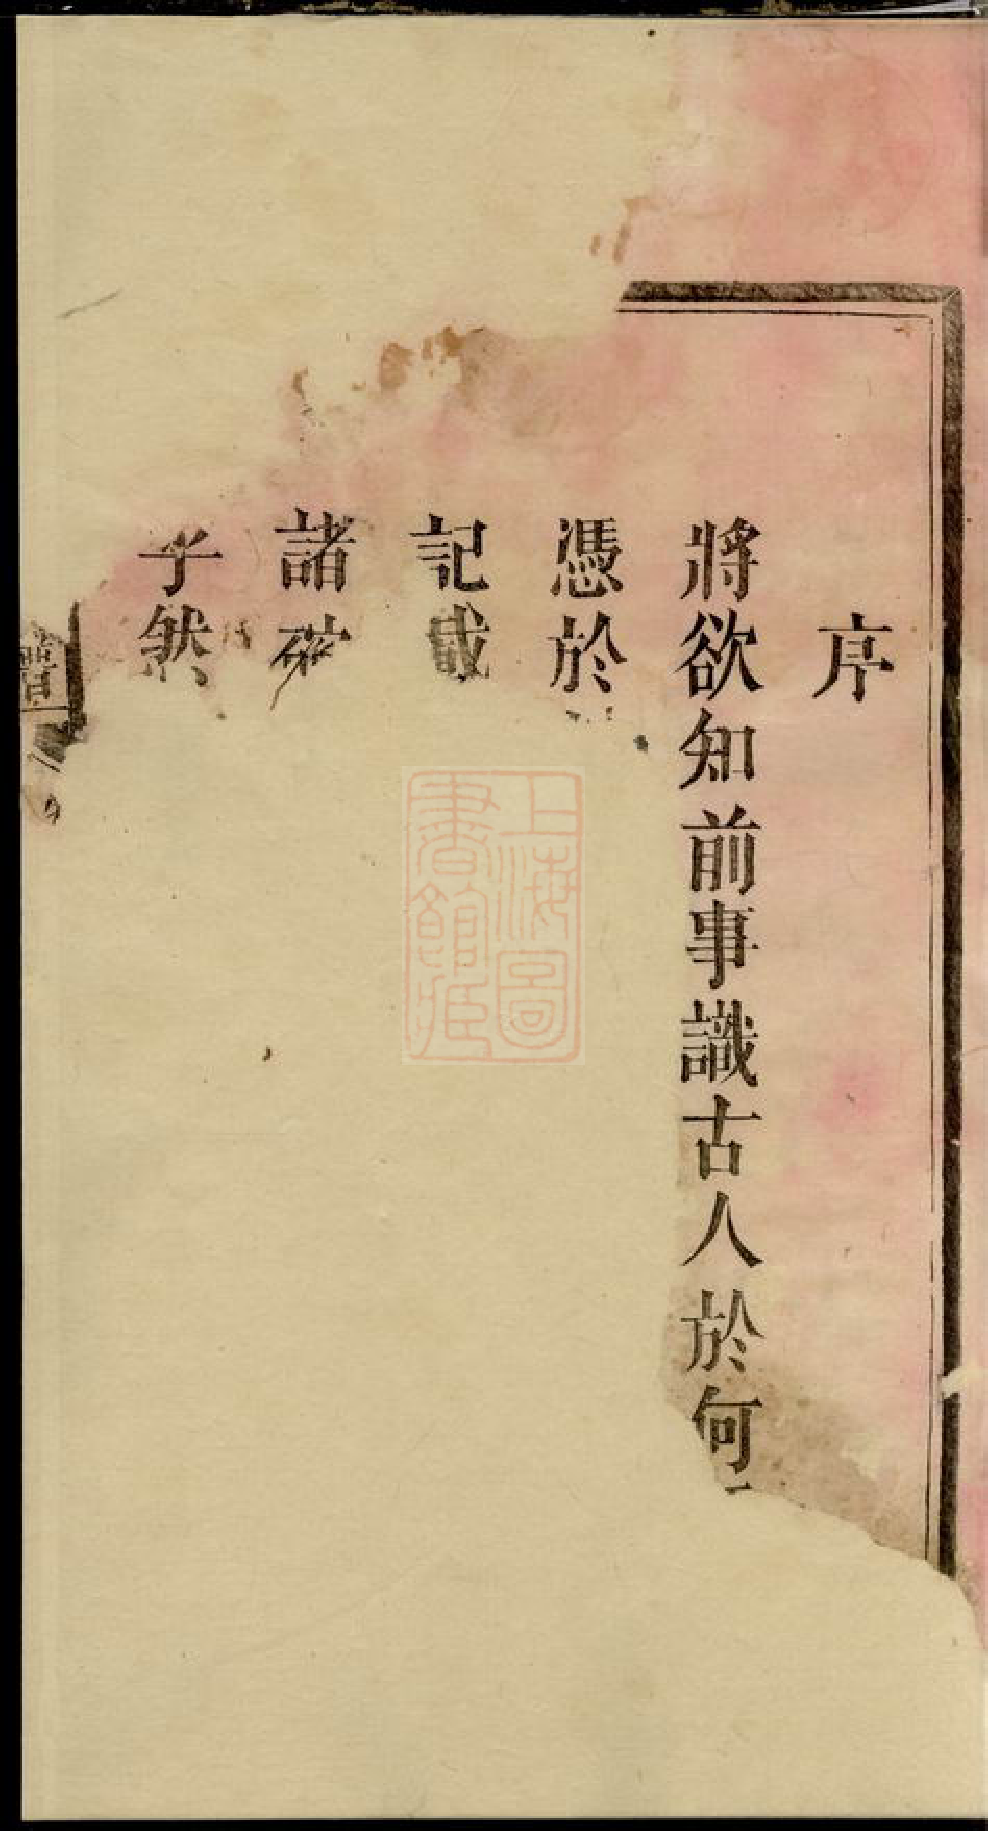 序
將欲知前事識古人於何
憑於
記載
諸
子然
譜
上海圖
書館藏